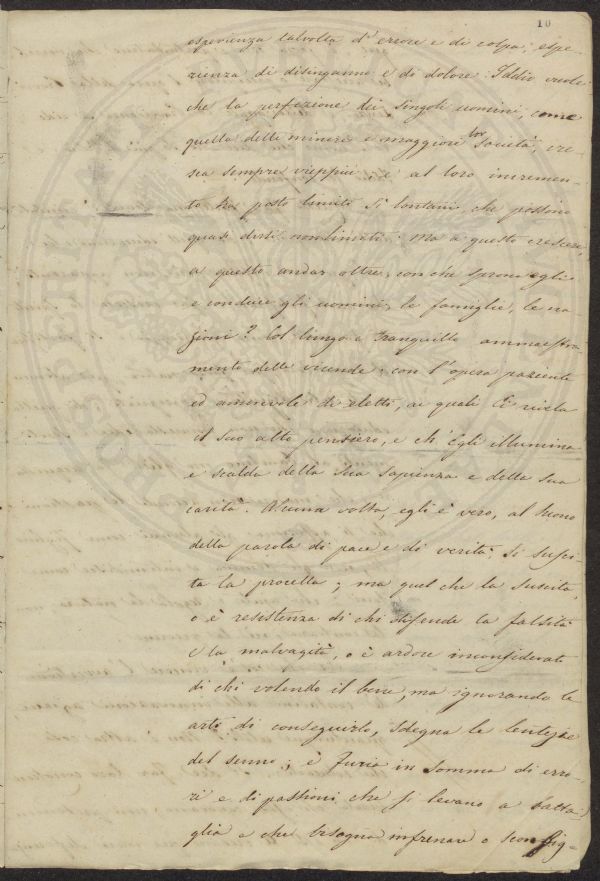 10
esperienza talvolta d'errore e di colpa; espe-
rienza di disinganno e di dolore. Iddio vuole
che la perfezione dei singoli uomini, come
quella delle minori e maggiore lor società, cre
sca sempre vieppiù; e al loro incremen-
to ha posto limiti sì lontani che possono
quasi dirsi nonlimiti. Ma a questo crescere,
a questo andar oltre, con che sprona egli
e conduce gli uomini, le famiglie, le na
zioni? Col lungo e tranquillo ammaestra-
mento delle vicende; con l'opera paziente
ed amorevole di eletti, ai quali Ei rivela
il suo alto pensiero, e ch'Egli illumina
e scalda della sua sapienza e della sua
carità. Alcuna volta, egli è vero, al suono
della parola di pace e di verità, si susci-
ta la procella; ma quel che la suscita,
o è resistenza di chi difende la falsità
e la malvagità, o è ardore inconsiderato
di chi volendo il bene, ma ignorando le
arti di conseguirlo, sdegna le lentezze
del senno; è furia in somma di erro-
ri e di passioni che si levano a batta-
glia e che bisogna infrenare o sconfig-
PROSPERITATI